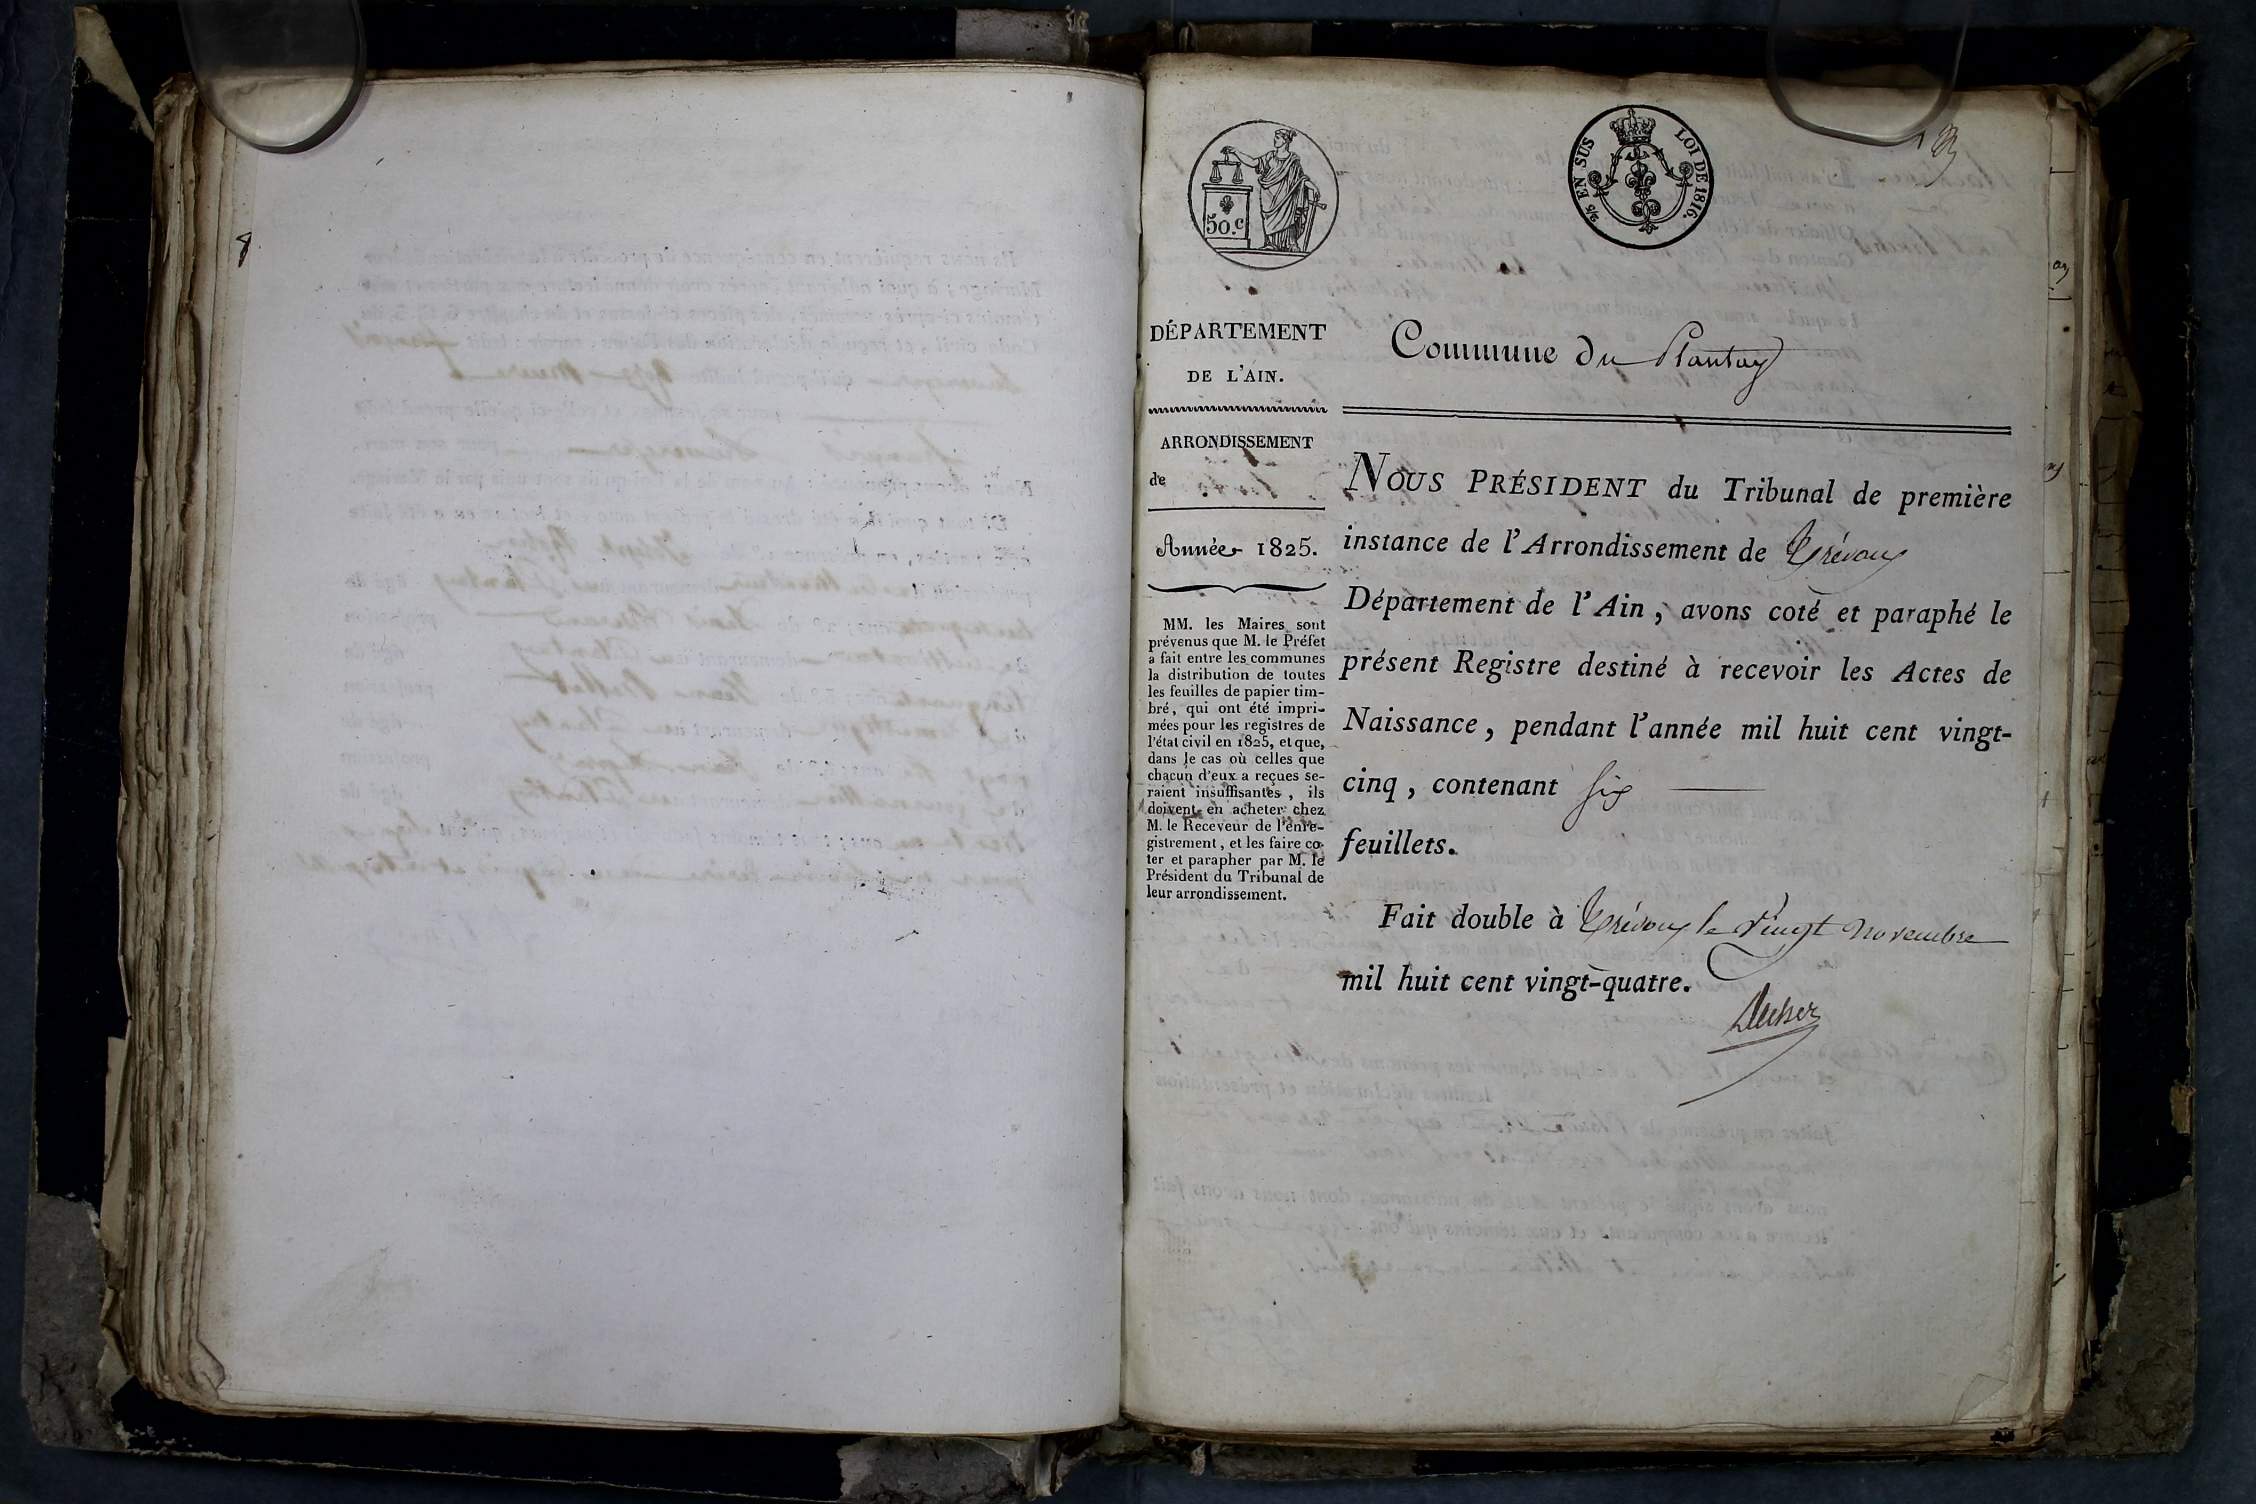 50.c
2/5 EN SUS
LOI DE 1816.
DÉPARTEMENT
DE L'AIN.
ARRONDISSEMENT
de
Année 1825.
MM. les Maires sont
prévenus que M. le Préfet
a fait entre les communes
la distribution de toutes
les feuilles de papier tim-
bré, qui ont été impri-
mées pour les registres de
l'état civil en 1825, et que,
dans le cas où celles que
chacun d'eux a reçues se-
raient insuffisantes, ils
doivent en acheter chez
M. le Receveur de l'enre-
gistrement, et les faire co-
ter et parapher par M. le
Président du Tribunal de
leur arrondissement.
Commune du Plantay
NOUS PRÉSIDENT du Tribunal de première
instance de l'Arrondissement de Trévoux
Département de l'Ain, avons coté et paraphé le
présent Registre destiné à recevoir les Actes de
Naissance, pendant l'année mil huit cent vingt-
cinq, contenant six
feuillets.
Fait double à Trévoux le vingt novembre
mil huit cent vingt-quatre.